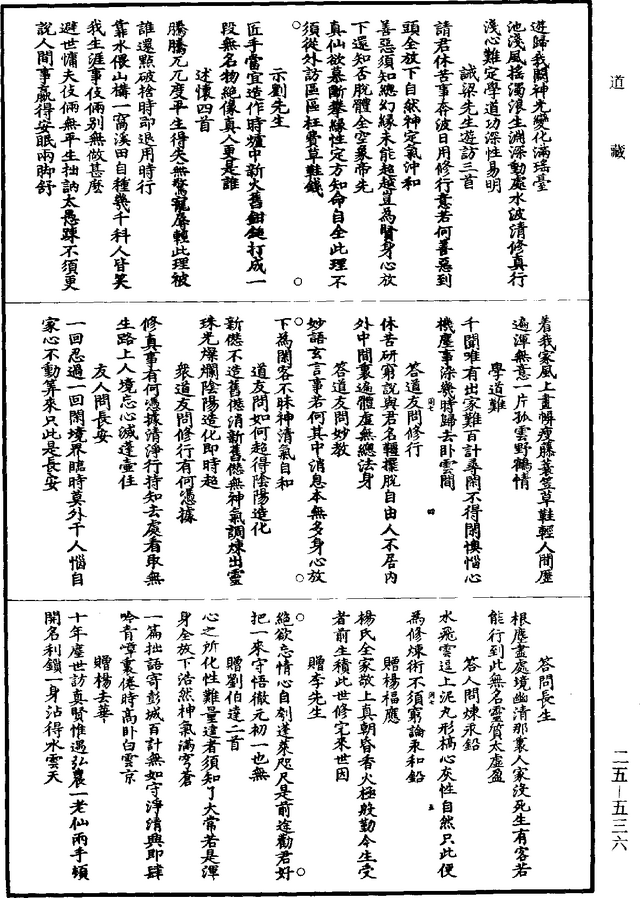 道藏
遊歸我闕神光變化滿瑤臺
池淺風搖濁浪生淵深動處水波清修真行
淺心難定學道功深性易明
誡梁先生遊訪三首
請君休苦事奔波日用修行意若何善惡到
頭全放下自然神定氣沖和
善惡須知總幻緣未能超越豈為賢身心放
下還知否脫體全空象帝先
真仙欲慕斷攀緣性定方知命自全此理不
須從外訪區區枉費草鞋錢
示劉先生
匠手當宜造作時爐中新火舊鉗鎚打成一
段無名物絕像真人更是誰
述懷四首
騰騰兀兀度平生得失無驚寵辱輕此理被
誰還點破捨時即退用時行
靠水偎山構一窩溪田自種幾千科人皆笑
我生涯事伎倆別無做甚麼
避世慵夫伎倆無平生拙訥太愚踈不須更
說人間事贏得安眠兩脚舒
着我家風上畫㡧瘦藤蓑笠草鞋輕人間歷
遍渾無意一片孤雲野鶴情
學道難
千聞唯有出家難百計尋閑不得閑懊惱心
機塵事深幾時歸去卧雲間
答道友問修行
休苦研窮說與君名韁擺脫自由人不居内
外中間裏遍體虛無總法身
答道友問妙教
妙語玄言事若何其中消息本無多身心放
下為閑客不昧神清氣自和
道友問如何超得陰陽造化
新僽不造舊僽消新舊僽無神氣調煉出靈
珠光燦爛陰陽造化即時超
衆道友問修行有何憑據
修真事有何憑據清淨行持知去處看取無
生路上人境忘心滅蓬壺住
友人問長安
一回忍過一回閑境界臨時莫外千人惱自
家心不動筭來只此是長安
答問長生
根塵盡處境幽清那裏人家沒死生有客若
能行到此無名靈質太虛盈
答人問煉汞鉛
水飛雲迢上泥丸形槁心灰性自然只此便
為修煉術不須窮論汞和鉛
贈楊福應
楊氏全家敬上真朝昏香火極殷勤今生受
者前生積此世修完來世因
贈李先生
絕欲忘情心自剳蓬萊咫尺是前途勸君好
把一來守悟徹元初一也無
贈劉伯達二首
心之所化性難量達者須知了大常若是渾
身全放下浩然神氣滿穹蒼
一篇拙語寄彭城百計無如守淨清興即肆
吟青嶂裏倦時高卧白雲京
贈楊去華
十年塵世訪真賢惟遇弘農一老仙兩手頓
開名利鎖一身沾得水雲天
二五—五三六